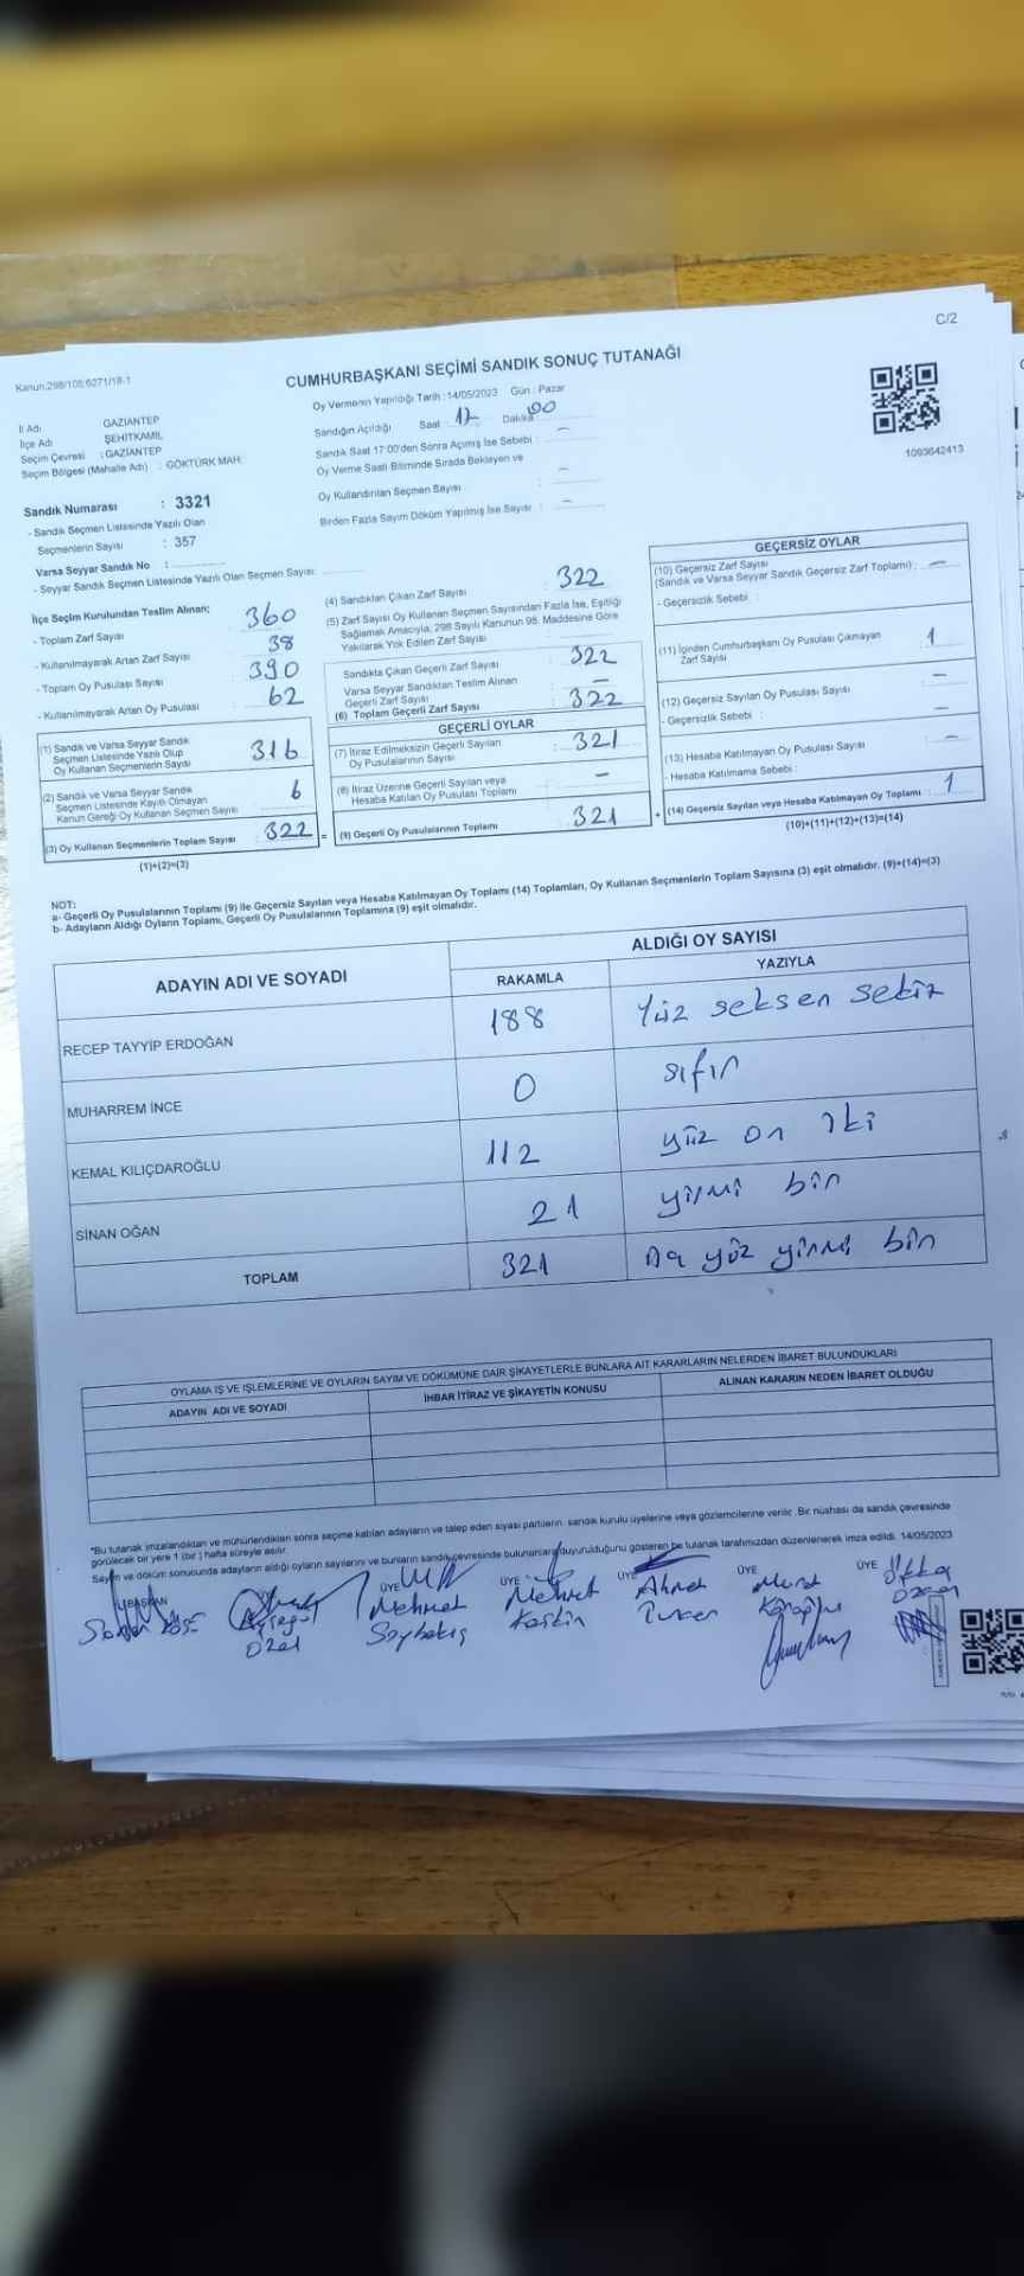 C/2
Kanun:298/105;6271/18-1
CUMHURBAŞKANI SEÇİMİ SANDIK SONUÇ TUTANAĞI
Oy Vermenin Yapıldığı Tarih : 14/05/2023 Gün : Pazar
İl Adı GAZİANTEP
İlçe Adı ŞEHİTKAMİL
Seçim Çevresi : GAZİANTEP
Seçim Bölgesi (Mahalle Adı) : GÖKTÜRK MAH.
Sandığın Açıldığı Saat 17 Dakika 00
Sandık Saat 17:00'den Sonra Açılmış İse Sebebi : –
Oy Verme Saati Bitiminde Sırada Bekleyen ve
Oy Kullandırılan Seçmen Sayısı : –
Birden Fazla Sayım Döküm Yapılmış İse Sayısı : –
1093642413
Sandık Numarası : 3321
- Sandık Seçmen Listesinde Yazılı Olan
Seçmenlerin Sayısı : 357
Varsa Seyyar Sandık No :
- Seyyar Sandık Seçmen Listesinde Yazılı Olan Seçmen Sayısı:
İlçe Seçim Kurulundan Teslim Alınan;
- Toplam Zarf Sayısı : 360
- Kullanılmayarak Artan Zarf Sayısı : 38
- Toplam Oy Pusulası Sayısı : 390
- Kullanılmayarak Artan Oy Pusulası : 62
(1) Sandık ve Varsa Seyyar Sandık
Seçmen Listesinde Yazılı Olup
Oy Kullanan Seçmenlerin Sayısı 316
(2) Sandık ve Varsa Seyyar Sandık
Seçmen Listesinde Kayıtlı Olmayan
Kanun Gereği Oy Kullanan Seçmen Sayısı 6
(3) Oy Kullanan Seçmenlerin Toplam Sayısı : 322 =
(1)+(2)=(3)
(4) Sandıktan Çıkan Zarf Sayısı : 322
(5) Zarf Sayısı Oy Kullanan Seçmen Sayısından Fazla İse, Eşitliği
Sağlamak Amacıyla, 298 Sayılı Kanunun 98. Maddesine Göre
Yakılarak Yok Edilen Zarf Sayısı
Sandıkta Çıkan Geçerli Zarf Sayısı : 322
Varsa Seyyar Sandıktan Teslim Alınan
Geçerli Zarf Sayısı : –
(6) Toplam Geçerli Zarf Sayısı : 322
GEÇERLİ OYLAR
(7) İtiraz Edilmeksizin Geçerli Sayılan
Oy Pusulalarının Sayısı : 321
(8) İtiraz Üzerine Geçerli Sayılan veya
Hesaba Katılan Oy Pusulası Toplamı –
(9) Geçerli Oy Pusulalarının Toplamı : 321 +
GEÇERSİZ OYLAR
(10) Geçersiz Zarf Sayısı
(Sandık ve Varsa Seyyar Sandık Geçersiz Zarf Toplamı) : –
- Geçersizlik Sebebi :
(11) İçinden Cumhurbaşkanı Oy Pusulası Çıkmayan
Zarf Sayısı : 1
(12) Geçersiz Sayılan Oy Pusulası Sayısı –
- Geçersizlik Sebebi : –
(13) Hesaba Katılmayan Oy Pusulası Sayısı –
- Hesaba Katılmama Sebebi :
(14) Geçersiz Sayılan veya Hesaba Katılmayan Oy Toplamı : 1
(10)+(11)+(12)+(13)=(14)
NOT:
a- Geçerli Oy Pusulalarının Toplamı (9) ile Geçersiz Sayılan veya Hesaba Katılmayan Oy Toplamı (14) Toplamları, Oy Kullanan Seçmenlerin Toplam Sayısına (3) eşit olmalıdır. (9)+(14)=(3)
b- Adayların Aldığı Oyların Toplamı, Geçerli Oy Pusulalarının Toplamına (9) eşit olmalıdır.
ADAYIN ADI VE SOYADI ALDIĞI OY SAYISI
RAKAMLA YAZIYLA
RECEP TAYYİP ERDOĞAN 188 Yüz seksen sekiz
MUHARREM İNCE 0 sıfır
KEMAL KILIÇDAROĞLU 112 yüz on iki
SİNAN OĞAN 21 yirmi bir
TOPLAM 321 yüz yirmi bir
OYLAMA İŞ VE İŞLEMLERİNE VE OYLARIN SAYIM VE DÖKÜMÜNE DAİR ŞİKAYETLERLE BUNLARA AİT KARARLARIN NELERDEN İBARET BULUNDUKLARI
ADAYIN ADI VE SOYADI İHBAR İTİRAZ VE ŞİKAYETİN KONUSU ALINAN KARARIN NEDEN İBARET OLDUĞU
*Bu tutanak imzalandıktan ve mühürlendikten sonra seçime katılan adayların ve talep eden siyasi partilerin sandık kurulu üyelerine veya gözlemcilerine verilir. Bir nüshası da sandık çevresinde
görülecek bir yere 1 (bir) hafta süreyle asılır.
Sayım ve döküm sonucunda adayların aldığı oyların sayılarını ve bunların sandık çevresinde bulunanlara duyurulduğunu gösteren bu tutanak tarafımızdan düzenlenerek imza edildi. 14/05/2023
BAŞKAN ÜYE ÜYE ÜYE ÜYE ÜYE
Mehmet Mehmet Ahmet Murat
Özel Keskin